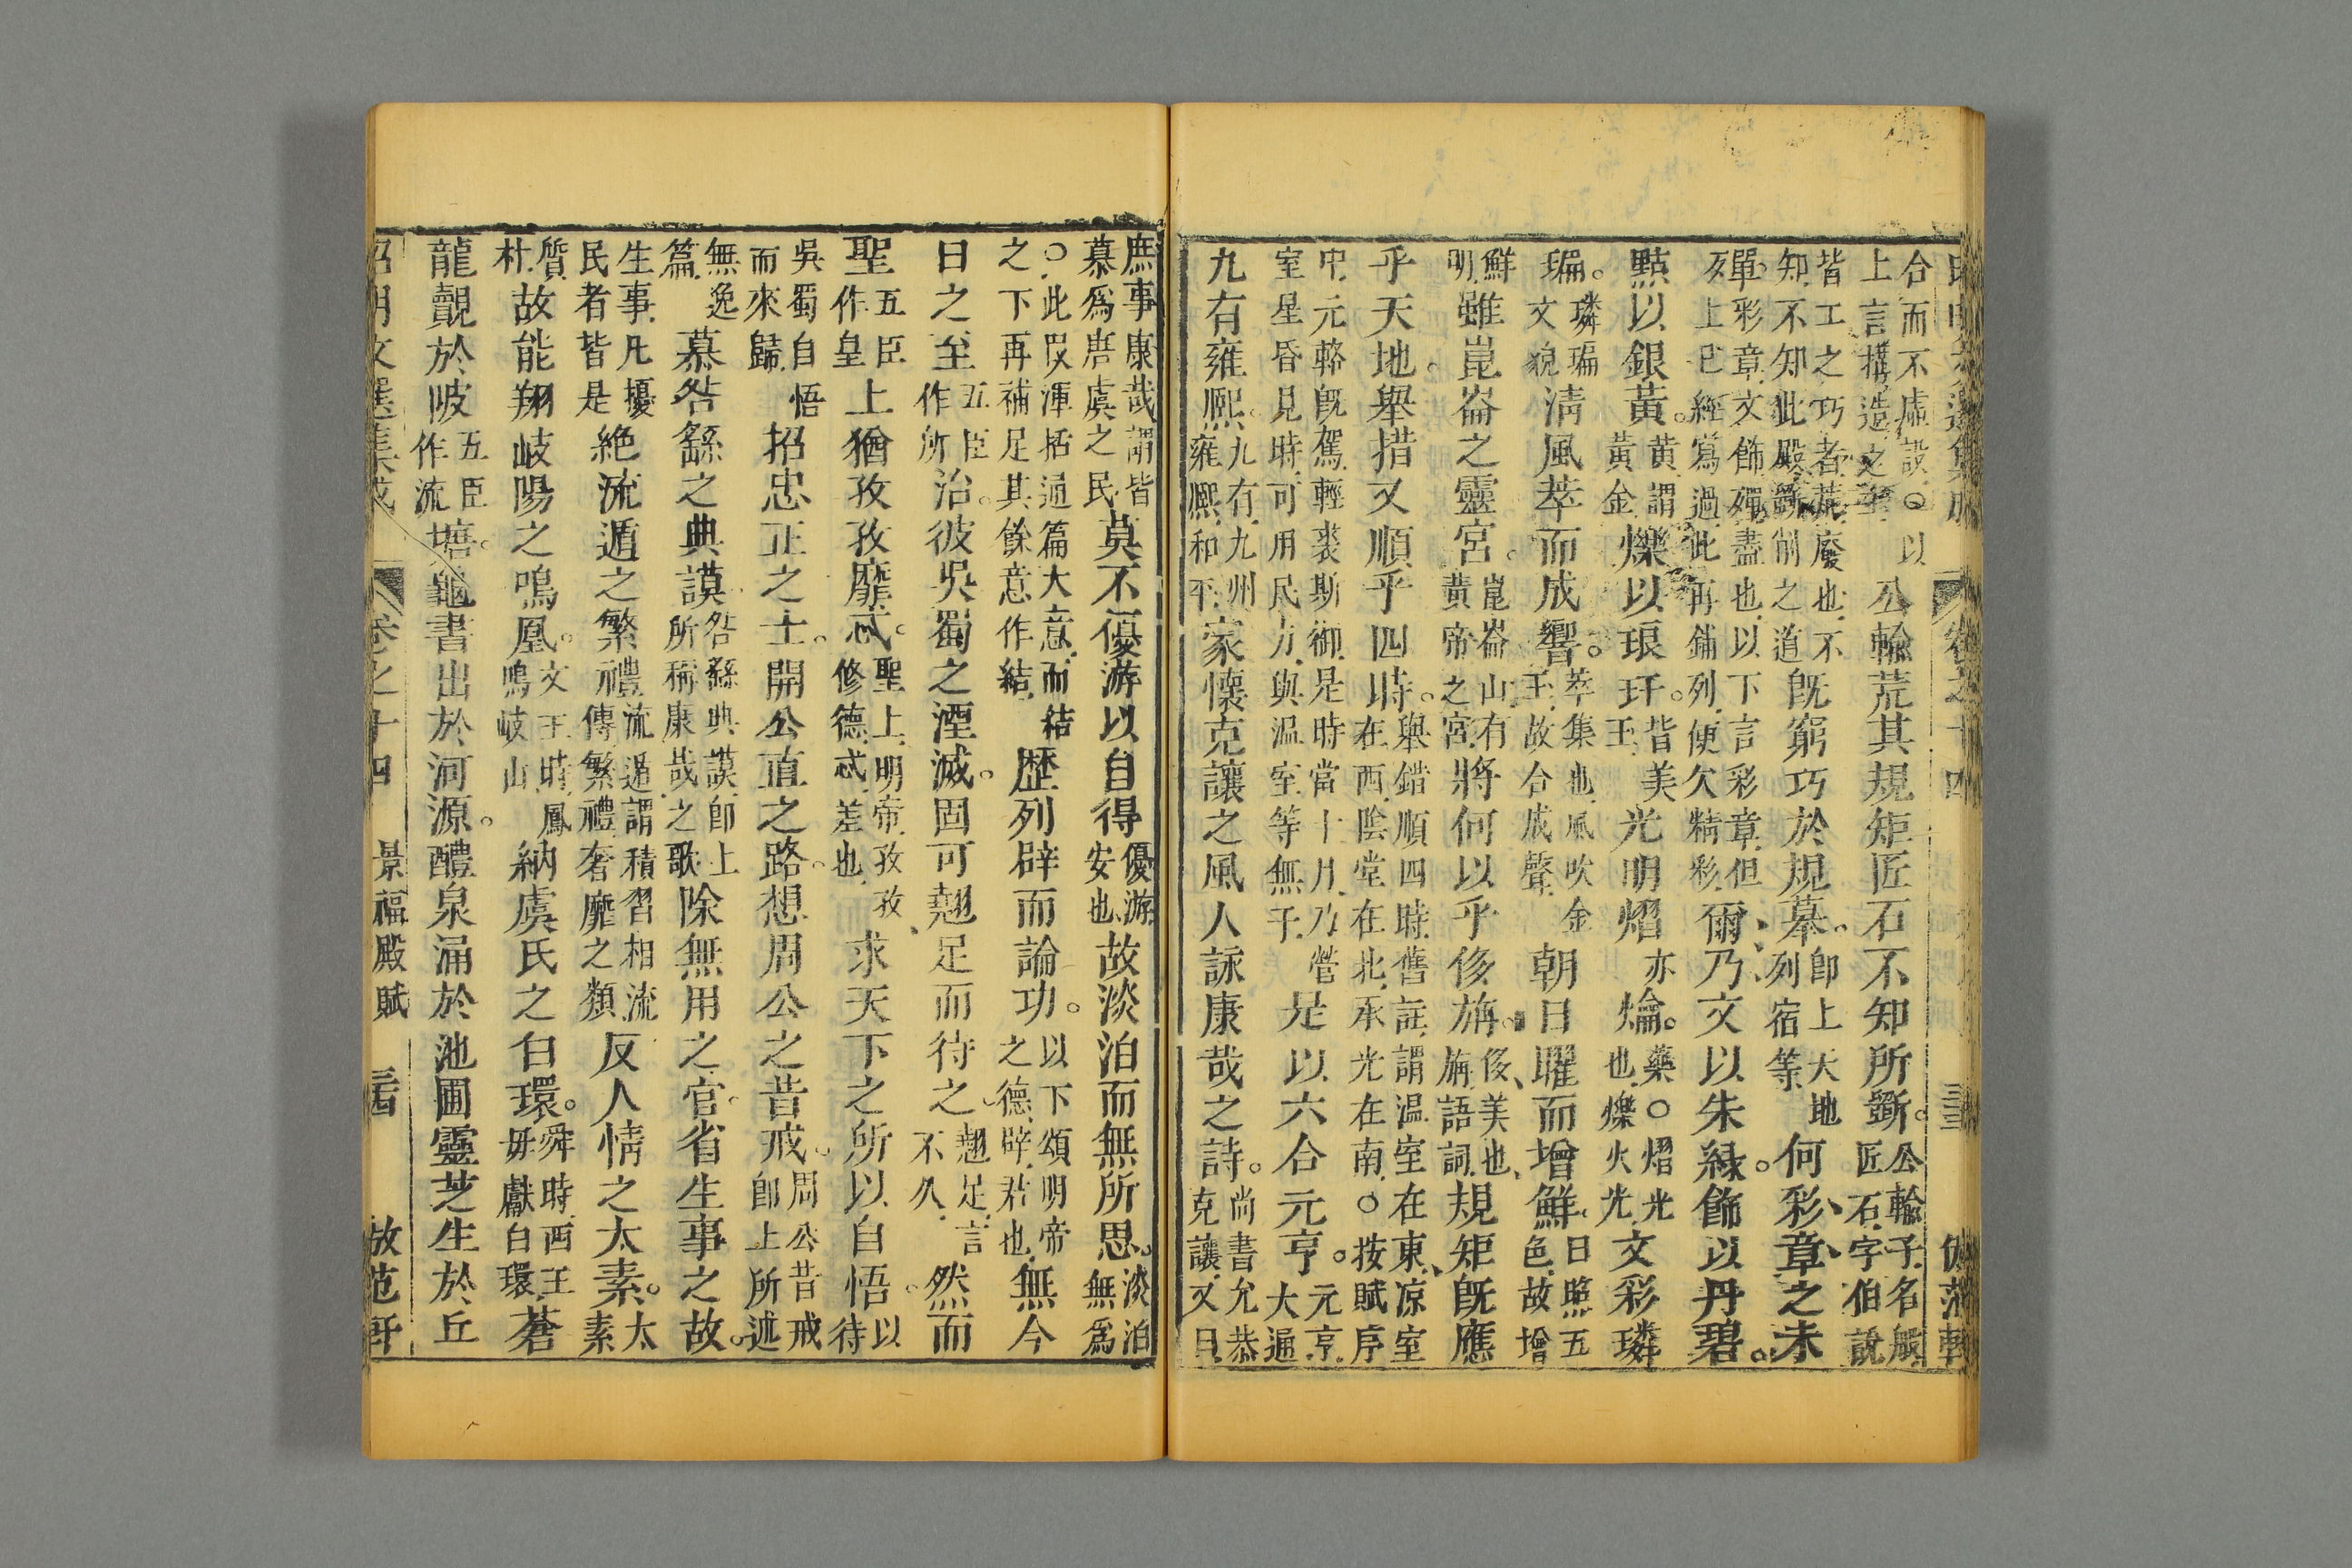 合而不虛設○以
上言構造之
公輸荒其規矩匠石不知所斲
公輸子名般
匠石字伯說
皆工之巧者荒廢也不
知不知此殿斲制之道
既窮巧於規摹
即上天地
列宿等
何彩章之未
單彩章文飾殫盡也以下言彩章但
及上已經寫過此再鋪列便欠精彩
爾乃文以朱綠飾以丹碧
點以銀黃
黃謂
黃金
爍以琅玕
皆美
玉
光明熠爚
亦
藥○熠光
也爍火光
文彩璘
㻞
璘㻞
文貌
清風萃而成響
萃集也風吹金
玉故合成聲
朝日曜而增鮮
日照五
色故增
鮮
明
雖崑崙之靈宮
崑崙山有
黃帝之宮
將何以乎侈旃
侈美也
旃語詞
規矩既應
乎天地舉措又順乎四時
舉錯順四時舊註謂溫室在東凉室
在西陰堂在北承光在南○按賦序
中元輅既駕輕裘斯御是時當十月乃營
室星昏見時可用民力與溫室等無干
是以六合元亨
元亨
大通
九有雍熙
九有九州
雍熙和平
家懷克讓之風人詠康哉之詩
尚書允恭
克讓又曰
庶事康哉謂皆
慕爲唐虞之民
莫不優游以自得
優游
安也
故淡泊而無所思
淡泊
無爲
○此段渾括通篇大意而結
之下再補足其餘意作結
歷列辟而論功
以下頌明帝
之德辟君也
無今
日之至
五臣
作所
治彼吳蜀之湮滅固可翹足而待之
翹足言
不久
然而
聖
五臣
作皇
上猶孜孜靡忒
聖上明帝孜孜
修德忒差也
求天下之所以自悟
以
待
吳蜀自悟
而來歸
招忠正之士開公直之路想周公之昔戒
周公昔戒
即上所述
無逸
篇
慕咎繇之典謨
咎繇典謨即上
所稱康哉之歌
除無用之官省生事之故
生事凡擾
民者皆是
絶流遁之繁禮
流遁謂積習相流
傳繁禮奢靡之類
反人情之太素
太
素
質
朴
故能翔岐陽之鳴凰
文王時鳳
鳴岐山
納虞氏之白環
舜時西王
毋獻白環
蒼
龍覿於陂
五臣
作流
塘龜書出於河源醴泉涌於池圃靈芝生於丘
昭明文選集成 卷之十四 景福殿賦